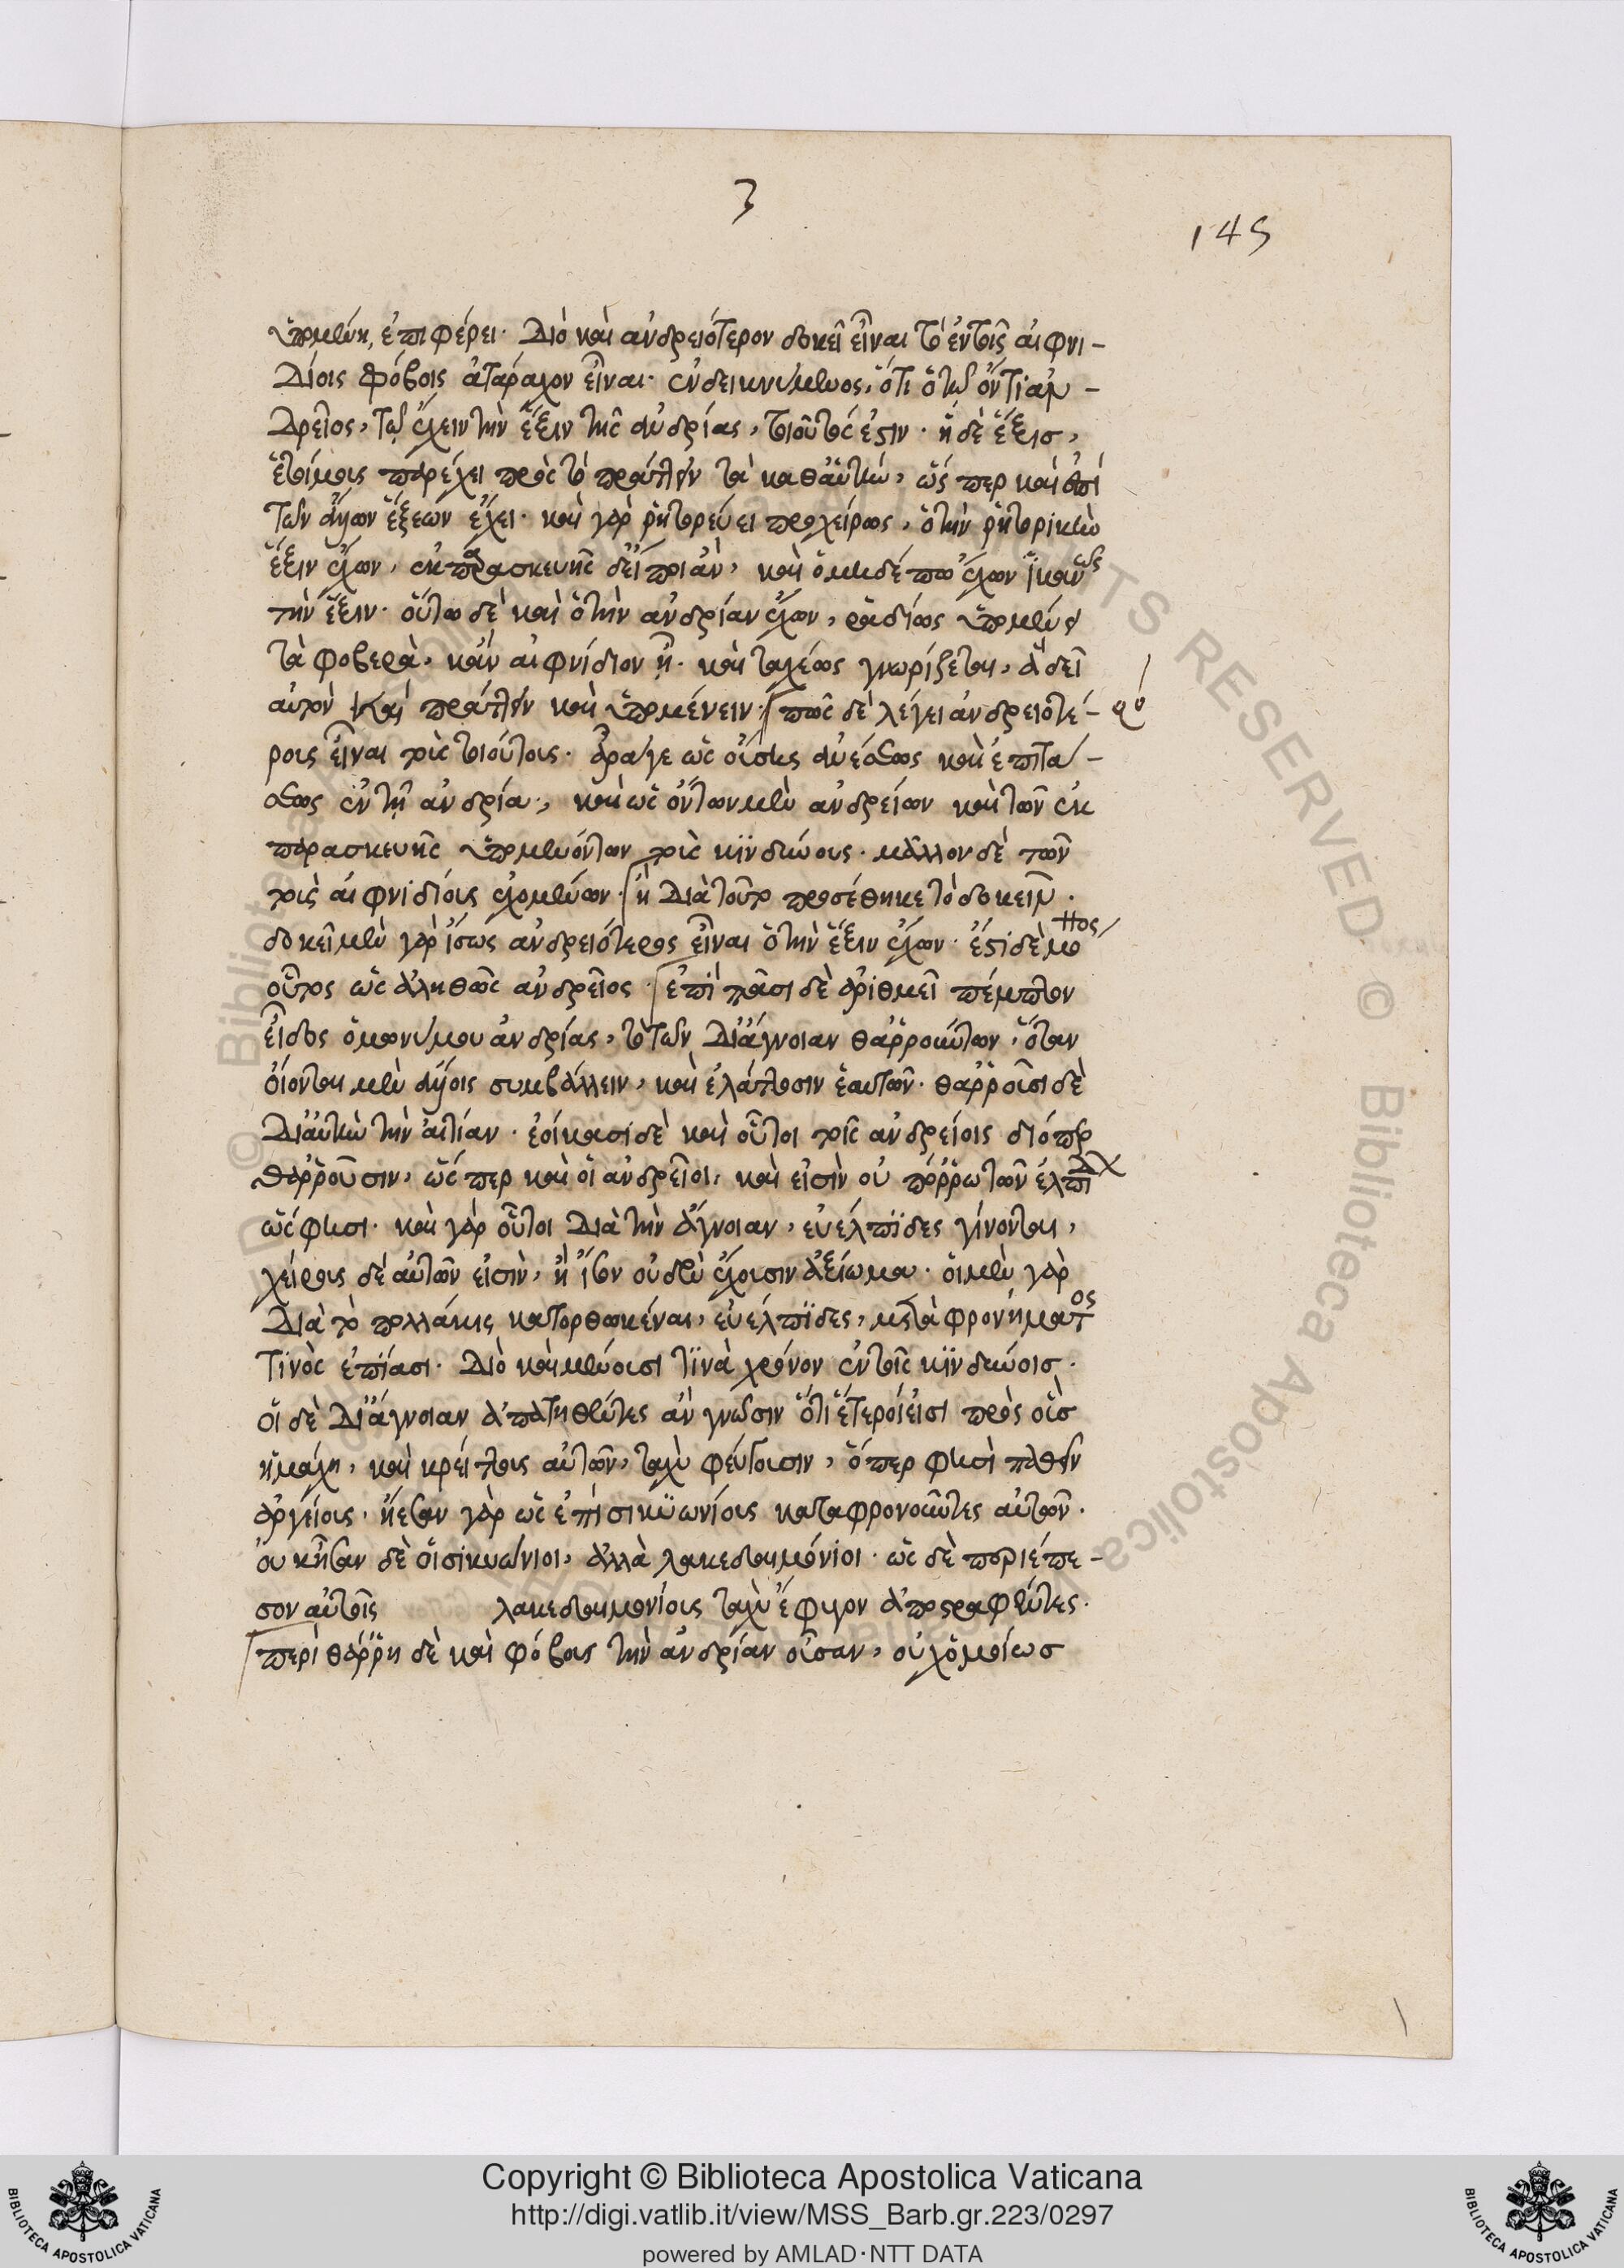 3
145
ὑπομένῃ, ἐπιφέρει. Διὸ καὶ ἀνδρειότερον δοκεῖ εἶναι τὸ ἐν τοῖς αἰφνι-
δίοις φόβοις ἀτάραχον εἶναι. ἐνδεικνύμενος, ὅτι ὁ τῷ ὄντι ἀν-
δρεῖος, τῷ ἔχειν τὴν ἕξιν τῆς ἀνδρίας, τοιοῦτός ἐστιν. ἡ δὲ ἕξις,
ἑτοίμους παρέχει πρὸς τὸ πράττειν τὰ καθ' αὑτὴν, ὥσπερ καὶ ἐπὶ
τῶν ἄλλων ἕξεων ἔχει. καὶ γὰρ ῥητορεύει προχείρως, ὁ τὴν ῥητορικὴν
ἕξιν ἔχων, ἐκ παρασκευῆς δὲ καὶ ὁ μηδέπω ἔχων ἱκανῶς
τὴν ἕξιν. οὕτω δὲ καὶ ὁ τὴν ἀνδρίαν ἔχων, ῥᾳδίως ὑπομένει
τὰ φοβερὰ, κἂν αἰφνίδιον ᾖ. καὶ ταχέως γνωρίζεται, ἃ δεῖ
αὐτὸν καὶ πράττειν καὶ ὑπομένειν. πῶς δὲ λέγει ἀνδρειοτέ-
ρους εἶναι τοὺς τοιούτους. ἆρά γε ὡς οὔσης ἀνέσεως καὶ ἐπιτά-
σεως ἐν τῇ ἀνδρίᾳ, καὶ ὡς ὄντων μὲν ἀνδρείων καὶ τῶν ἐκ
παρασκευῆς ὑπομενόντων τοὺς κινδύνους. μᾶλλον δὲ τῶν
τοῖς αἰφνιδίοις ἐχομένων. ἢ διὰ τοῦτο προσέθηκε τὸ δοκεῖν.
δοκεῖ μὲν γὰρ ἴσως ἀνδρειότερος εἶναι ὁ τὴν ἕξιν ἔχων. ἔστι δὲ μόνος
οὗτος ὡς ἀληθῶς ἀνδρεῖος. ἐπὶ πᾶσι δὲ ἀριθμεῖ πέμπτον
εἶδος ὁμωνύμου ἀνδρίας, τὸ τῶν δι' ἄγνοιαν θαρρούντων, ὅταν
οἴονται μὲν ἄλλοις συμβάλλειν, καὶ ἐλάττοσιν ἑαυτῶν. θαρροῦσι δὲ
δι' αὐτὴν τὴν αἰτίαν. ἐοίκασι δὲ καὶ οὗτοι τοῖς ἀνδρείοις διόπερ
θαρροῦσιν, ὥσπερ καὶ οἱ ἀνδρεῖοι, καὶ εἰσὶν οὐ πόρρω τῶν εὐελπίδων
ὥς φησι. καὶ γὰρ οὗτοι διὰ τὴν ἄγνοιαν, εὐέλπιδες γίνονται,
χείρους δὲ αὐτῶν εἰσὶν, ᾗ ἴσον οὐδὲν ἔχουσιν ἀξίωμα. οἱ μὲν γὰρ
διὰ τὸ πολλάκις κατορθωκέναι, εὐέλπιδες, μετὰ φρονήματος
τινὸς ἐπίασι. Διὸ καὶ μένουσι τινὰ χρόνον ἐν τοῖς κινδύνοις.
οἱ δὲ δι' ἄγνοιαν ἀπατηθέντες ἂν γνῶσιν ὅτι ἕτεροί εἰσι πρὸς οὓς
ἡ μάχη, καὶ κρείττους αὐτῶν, ταχὺ φεύγουσιν, ὅπερ φησὶ παθεῖν
ἀργείους, ᾔεσαν γὰρ ὡς ἐπὶ σικυωνίοις καταφρονοῦντες αὐτῶν.
οὐκ ἦσαν δὲ οἱ σικυώνιοι, ἀλλὰ λακεδαιμόνιοι. ὡς δὲ περιέπε-
σον αὐτοῖς λακεδαιμονίοις ταχὺ ἔφυγον ἀποστραφέντες.
περὶ θάρρη δὲ καὶ φόβους τὴν ἀνδρίαν οὖσαν, οὐχ ὁμοίως
Copyright © Biblioteca Apostolica Vaticana
http://digi.vatlib.it/view/MSS_Barb.gr.223/0297
powered by AMLAD·NTT DATA
BIBLIOTECA APOSTOLICA VATICANA
BIBLIOTECA APOSTOLICA VATICANA